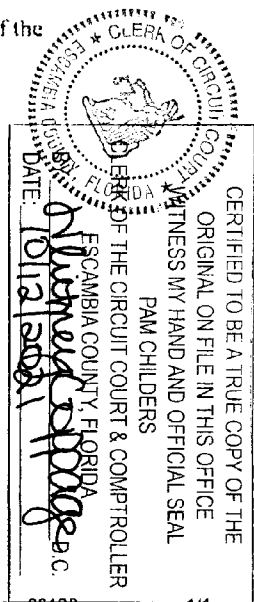 f the
CLERK OF CIRCUIT COURT
ESCAMBIA COUNTY, FLORIDA
CERTIFIED TO BE A TRUE COPY OF THE
ORIGINAL ON FILE IN THIS OFFICE
WITNESS MY HAND AND OFFICIAL SEAL
PAM CHILDERS
CLERK OF THE CIRCUIT COURT & COMPTROLLER
ESCAMBIA COUNTY, FLORIDA
BY: D.C.
DATE: 10/12/2021